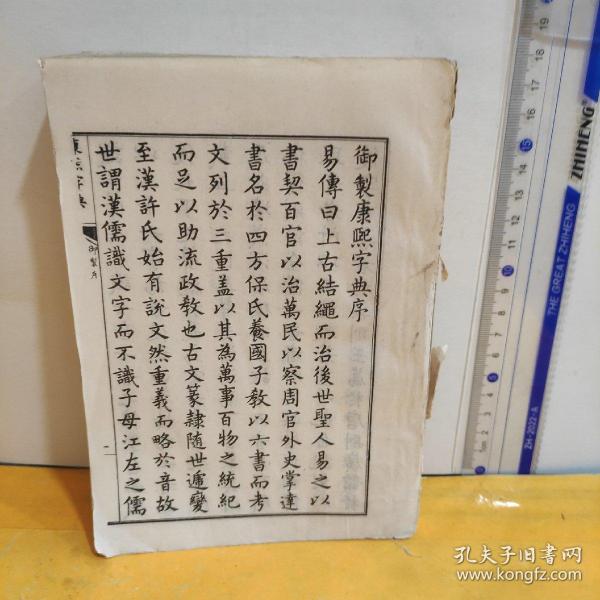 御製康熙字典序
易傳曰上古結繩而治後世聖人易之以
書契百官以治萬民以察周官外史掌達
書名於四方保氏養國子教以六書而考
文列於三重蓋以其為萬事百物之統紀
而足以助流政教也古文篆隸隨世遞變
至漢許氏始有說文然重義而略於音故
世謂漢儒識文字而不識子母江左之儒
康熙字典
御製序
一
ZHIHENG®
THE GREAT ZHIHENG
ZH-2022-A
孔夫子旧书网
www.kongfz.com